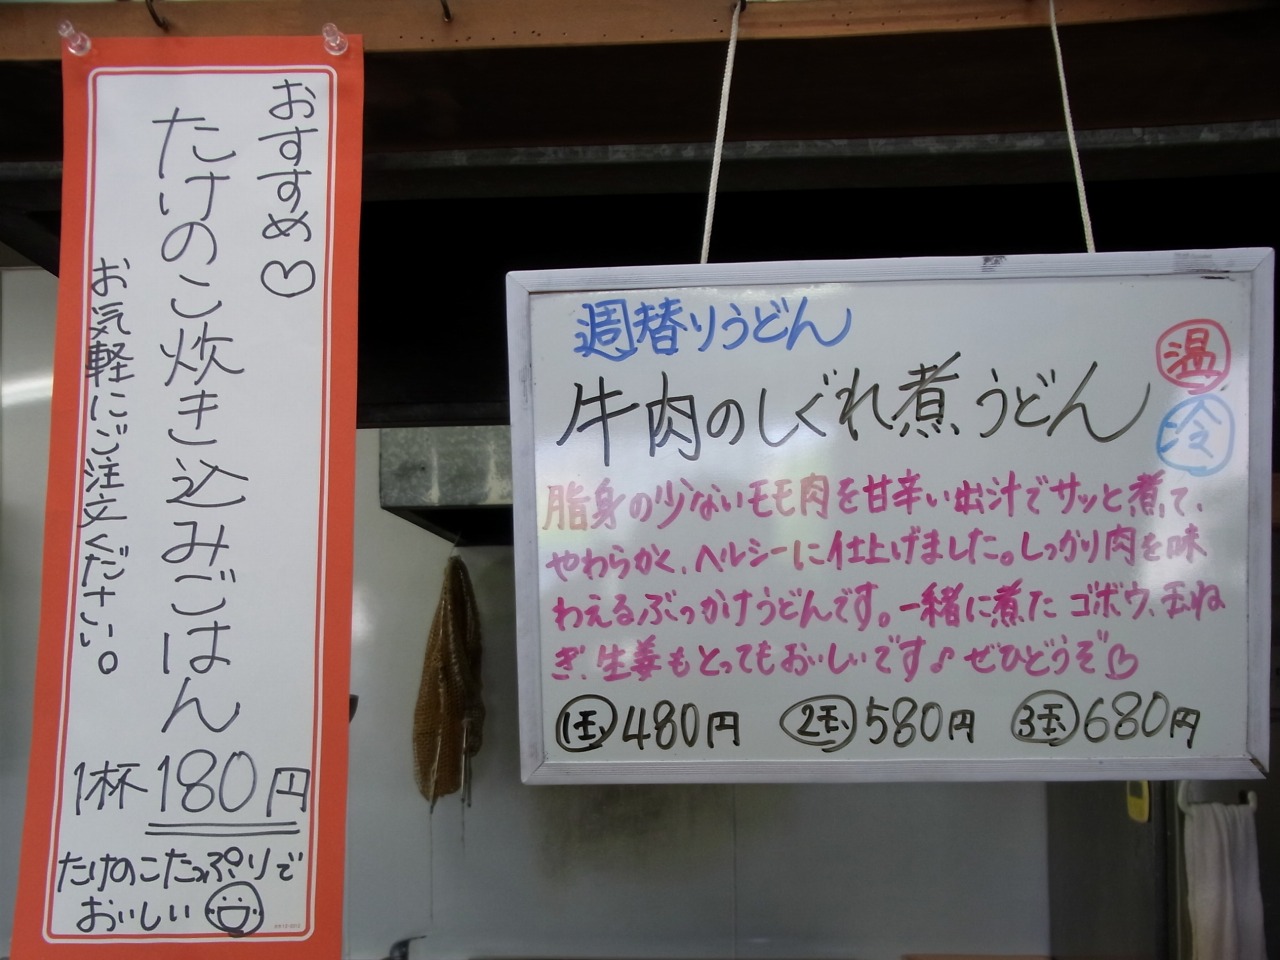 おすすめ♡
たけのこ炊き込みごはん
お気軽にご注文ください。
1杯180円
たけのこたっぷりで
おいしい
週替りうどん
温
冷
牛肉のしぐれ煮うどん
脂身の少ないモモ肉を甘辛い出汁でサッと煮て、
やわらかく、ヘルシーに仕上げました。しっかり肉を味
わえるぶっかけうどんです。一緒に煮たゴボウ、玉ね
ぎ、生姜もとってもおいしいです♪ぜひどうぞ♡
1玉480円 2玉580円 3玉680円